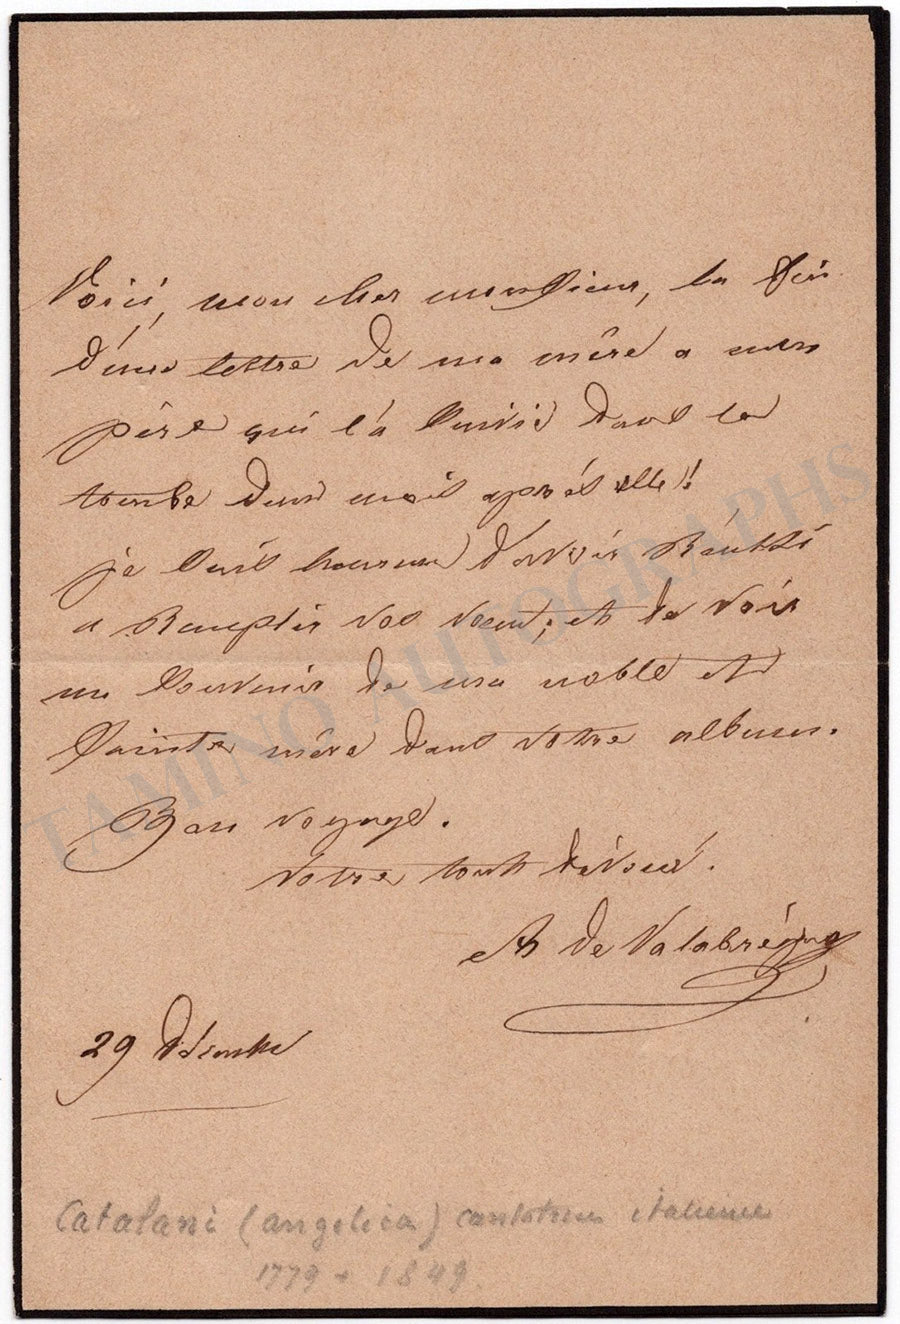 Voici, mon cher monsieur, la fin
d'une lettre de ma mère a mon
père qui l'a suivie dans la
tombe deux mois après elle!!
je suis heureux d'avoir Réussi
a Remplir vos voeux, et de voir
un souvenir de ma noble et
Sainte mère dans votre album.
Bon voyage.
votre tout dévoué.
de Valabrègue
29 décembre
Catalani (angelica) cantatrice italienne
1779 + 1849.
TAMINO AUTOGRAPHS